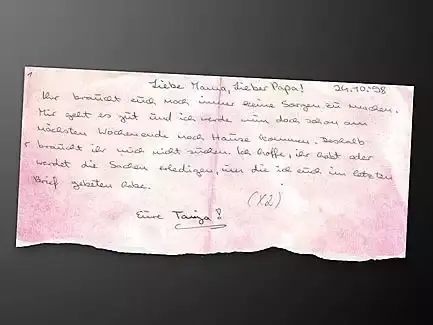 1
Liebe Mama, Lieber Papa! 24.10.'98
Ihr braucht euch noch immer keine Sorgen zu machen.
Mir geht es gut und ich werde nun doch schon am
nächsten Wochenende nach Hause kommen. Deshalb
braucht ihr mich nicht suchen. Ich hoffe, ihr habt oder
werdet die Sachen erledigen, um die ich euch im letzten
Brief gebeten habe.
(X2)
Eure Tanja!